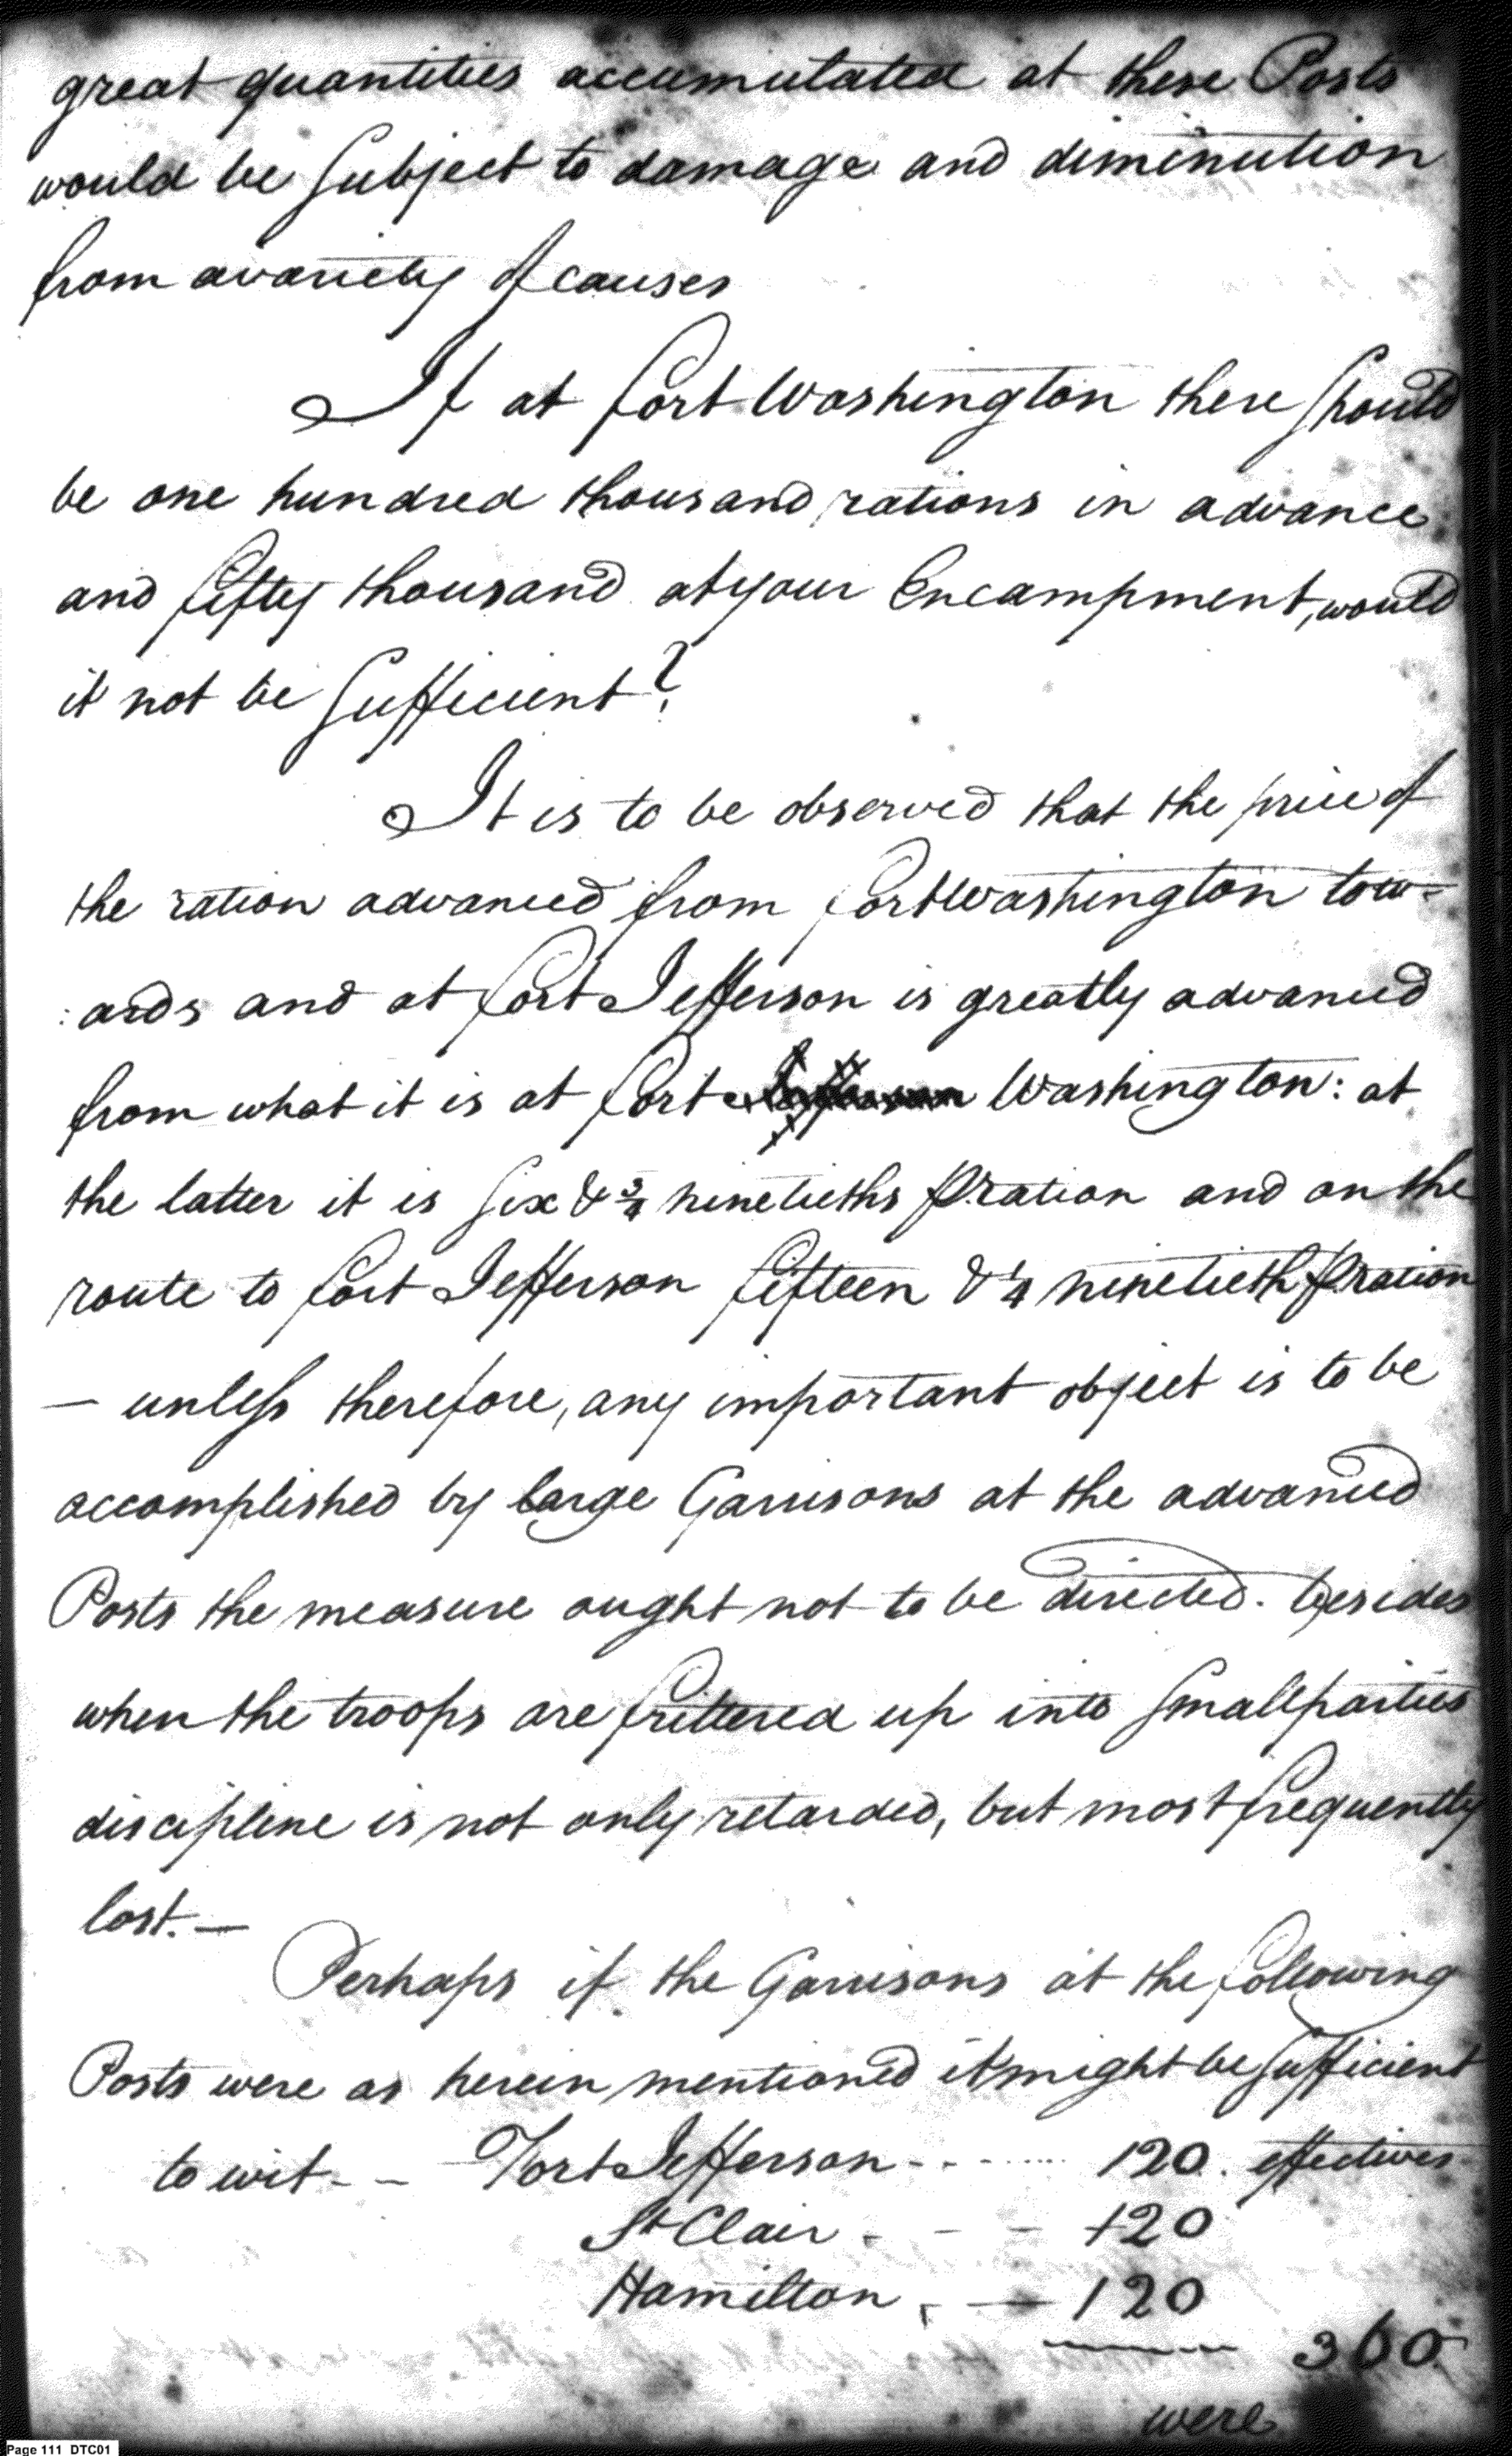 great quantities accumulated at these Posts
would be subject to damage and diminution
from a variety of causes
If at fort Washington there should
be one hundred thousand rations in advance
and fifty thousand at your Encampment, would
it not be sufficient?
It is to be observed that the price of
the ration advanced from fort Washington tow=
:ards and at fort Jefferson is greatly advanced
from what it is at fort Jefferson Washington: at
the latter it is six & 3/4 ninetieths ⅌ ration and on the
route to fort Jefferson fifteen & 1/4 ninetieth ⅌ ration
— unless therefore, any important object is to be
accomplished by large Garrisons at the advanced
Posts the measure ought not to be directed. besides
when the troops are frittered up into small parties
discipline is not only retarded, but most frequently
lost.—
Perhaps if the Garrisons at the following
Posts were as herein mentioned it might be sufficient
to wit - - Fort Jefferson - - - - - - 120. effectives
St Clair - - - 120
Hamilton, - — 120
360
were
Page 111 DTC01